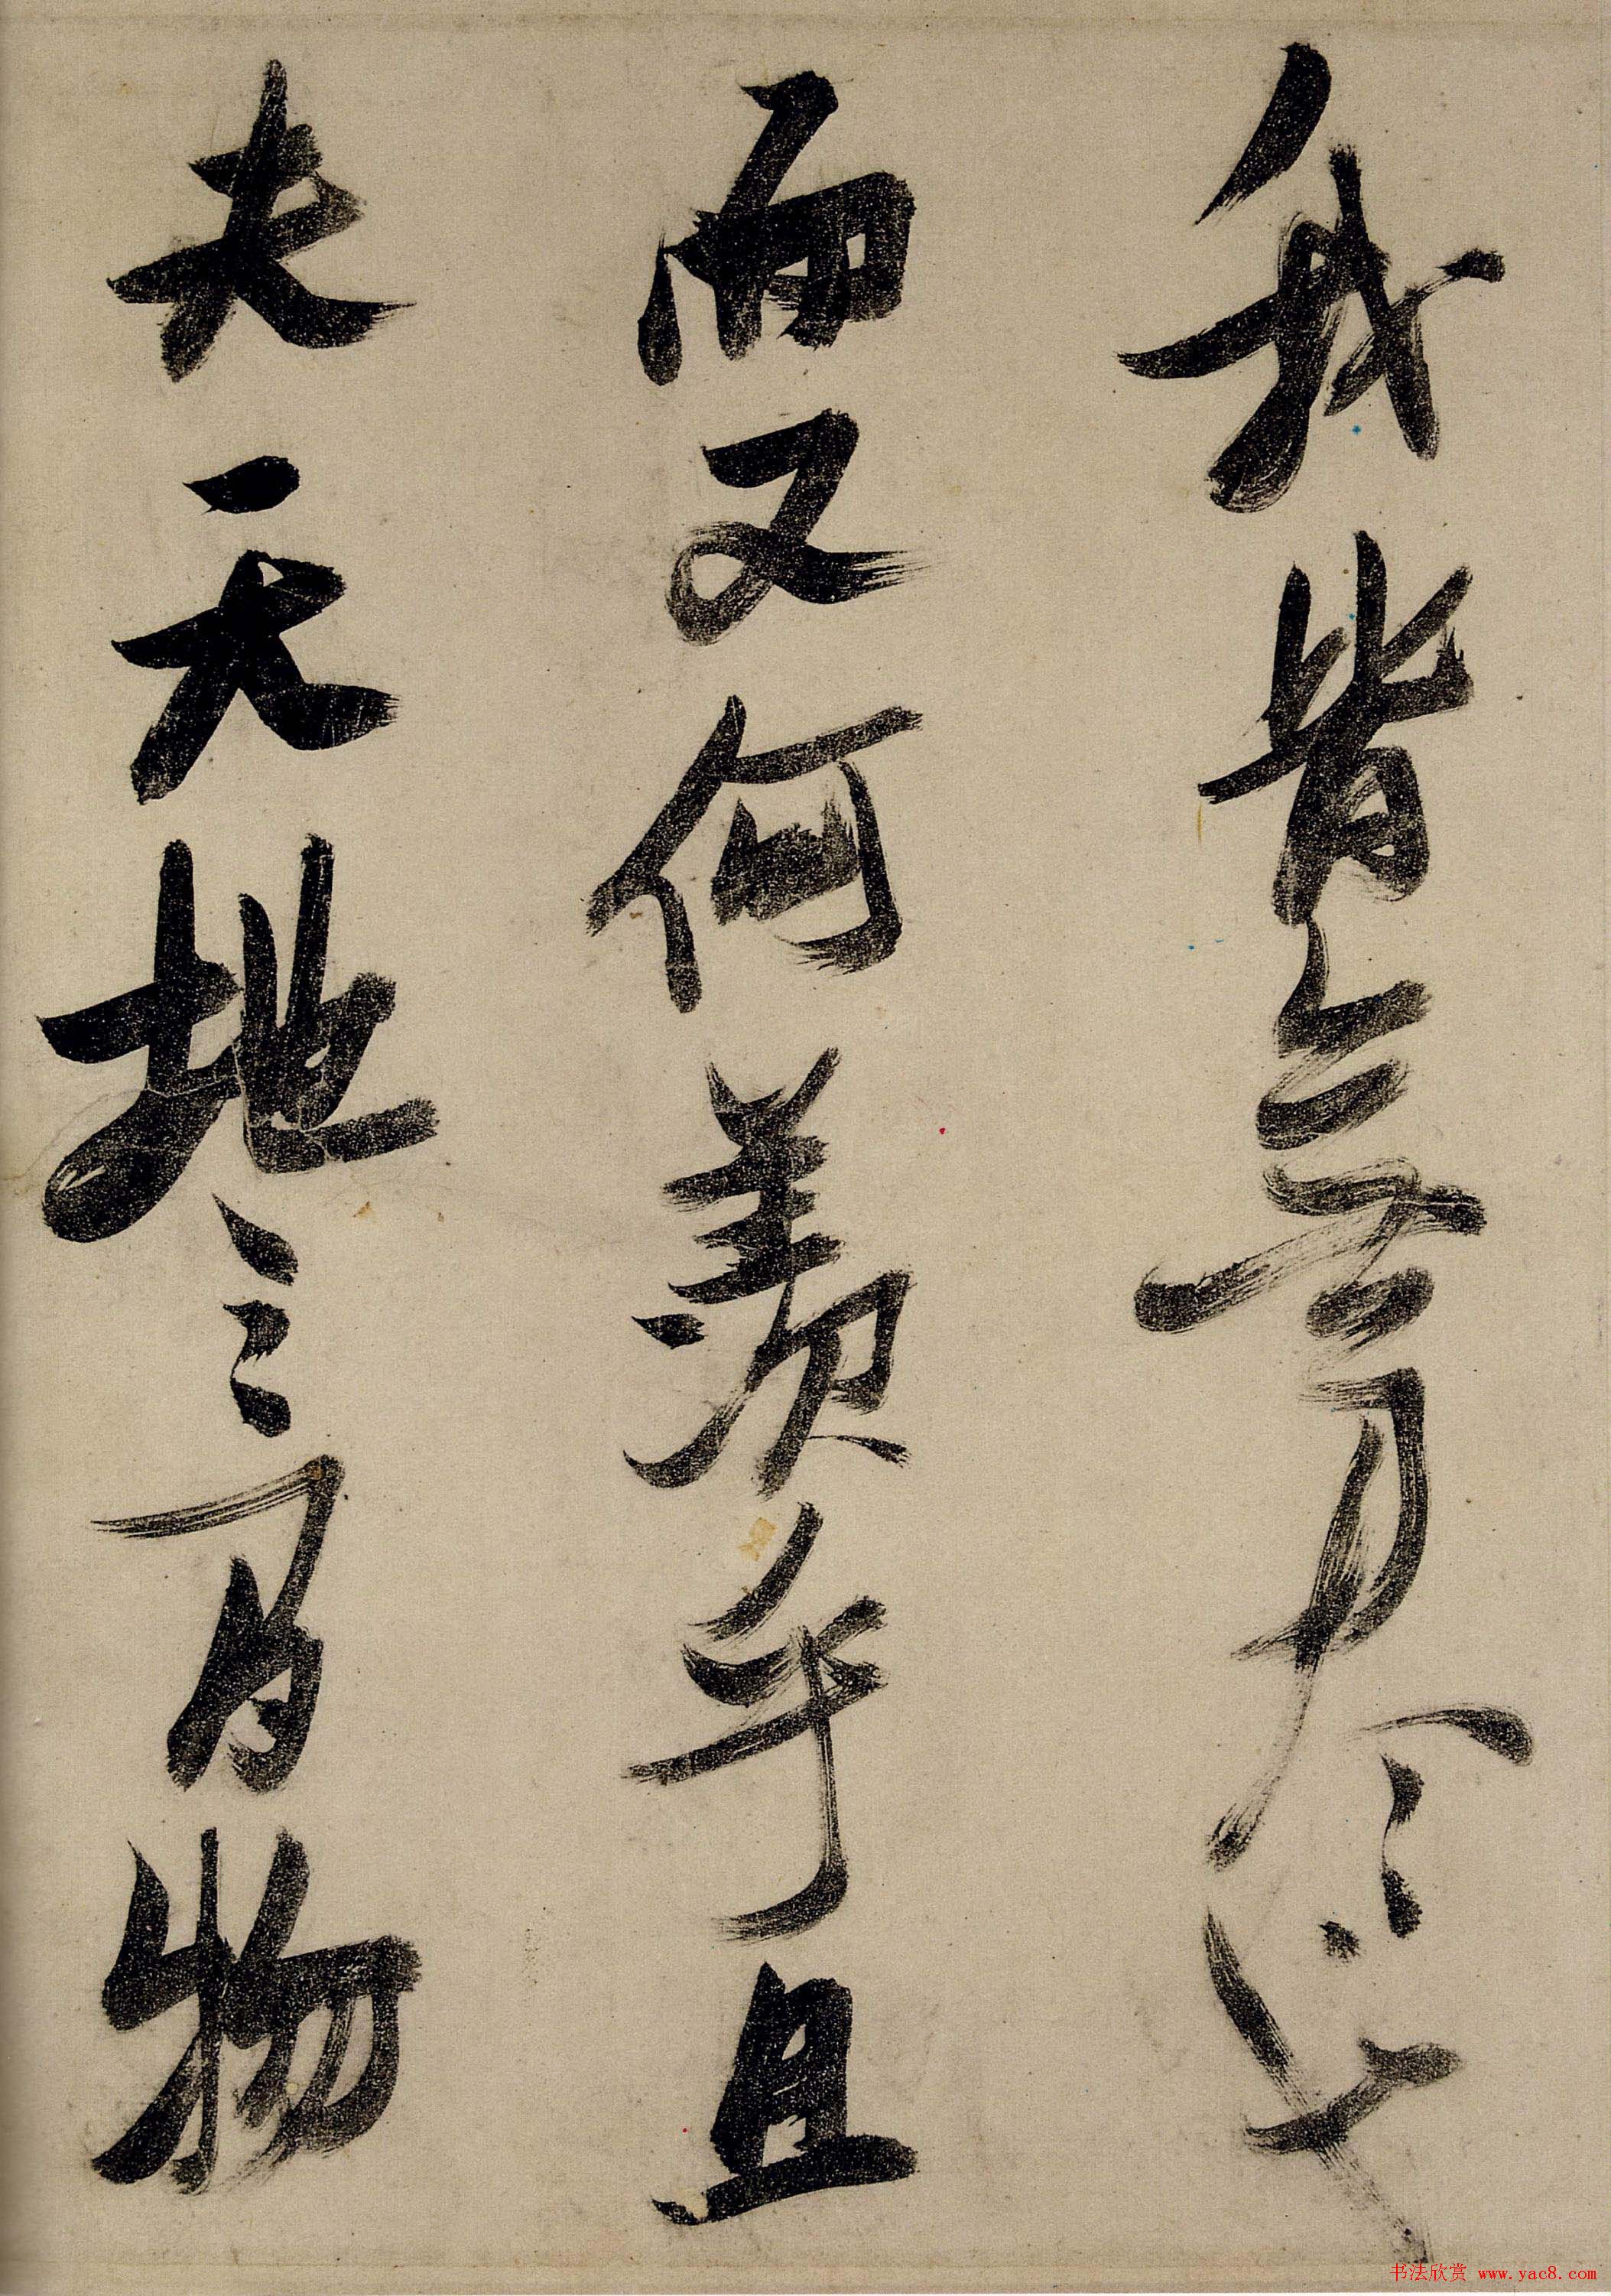 我皆無盡也
而又何羨乎且
夫天地之間物
书法欣赏 www.yac8.com